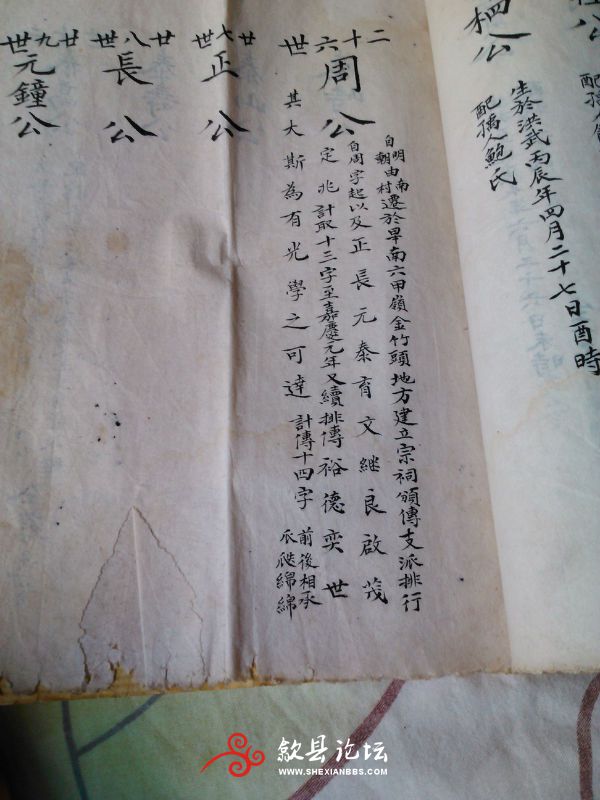 公
配孺人
公
生於洪武丙辰年四月二十七日酉時
配孺人鮑氏
二十六世
周公
自明朝由南村遷於旱南六甲嶺金竹頭地方建立宗祠頒傳支派排行
自周字起以及正長元泰育文繼良啟茂
定兆計取十三字至嘉慶元年又續排傳裕德奕世
其大斯為有光學之可達計傳十四字前後相承瓜瓞綿綿
廿七世
正公
廿八世
長公
廿九世
元鐘公
歙县论坛
WWW.SHEXIANBBS.COM